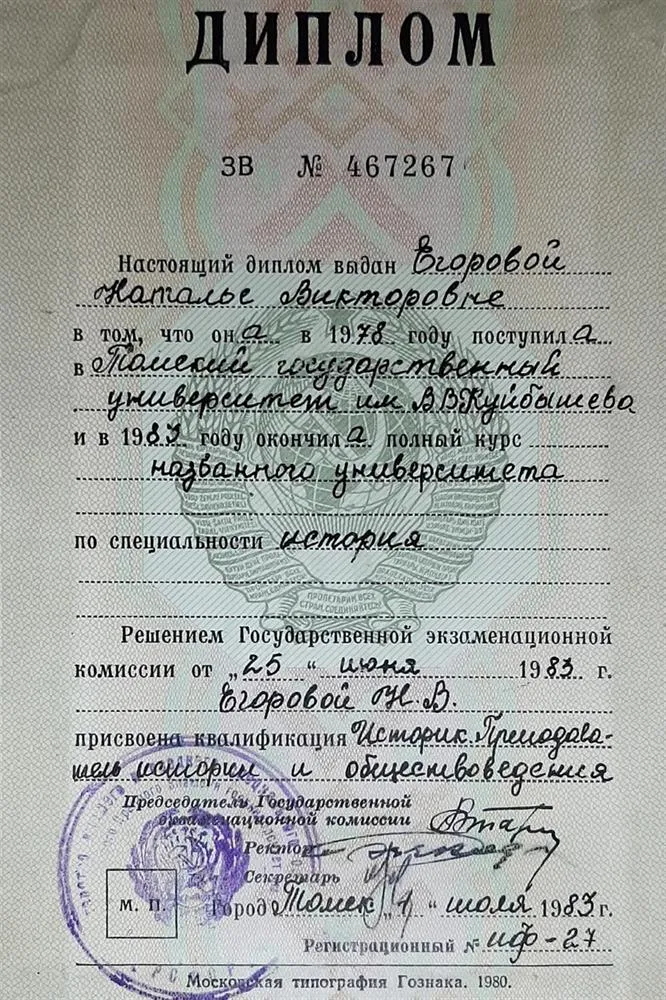 ДИПЛОМ
ЗВ № 467267
Настоящий диплом выдан Егоровой
Наталье Викторовне
в том, что она в 1978 году поступила
в Томский государственный
университет им В.В.Куйбышева
и в 1983 году окончила полный курс
названного университета
по специальности история
ПРОЛЕТАРИИ ВСЕХ
СТРАН, СОЕДИНЯЙТЕСЬ!
Решением Государственной экзаменационной
комиссии от „25 “ июня 1983 г.
Егоровой Н.В.
присвоена квалификация Историк. Преподава-
тель истории и обществоведения
Председатель Государственной
экзаменационной комиссии
Ректор
Секретарь
М. П.
Город Томск „1 “ июля 1983 г.
Регистрационный № иф-27
Московская типография Гознака. 1980.